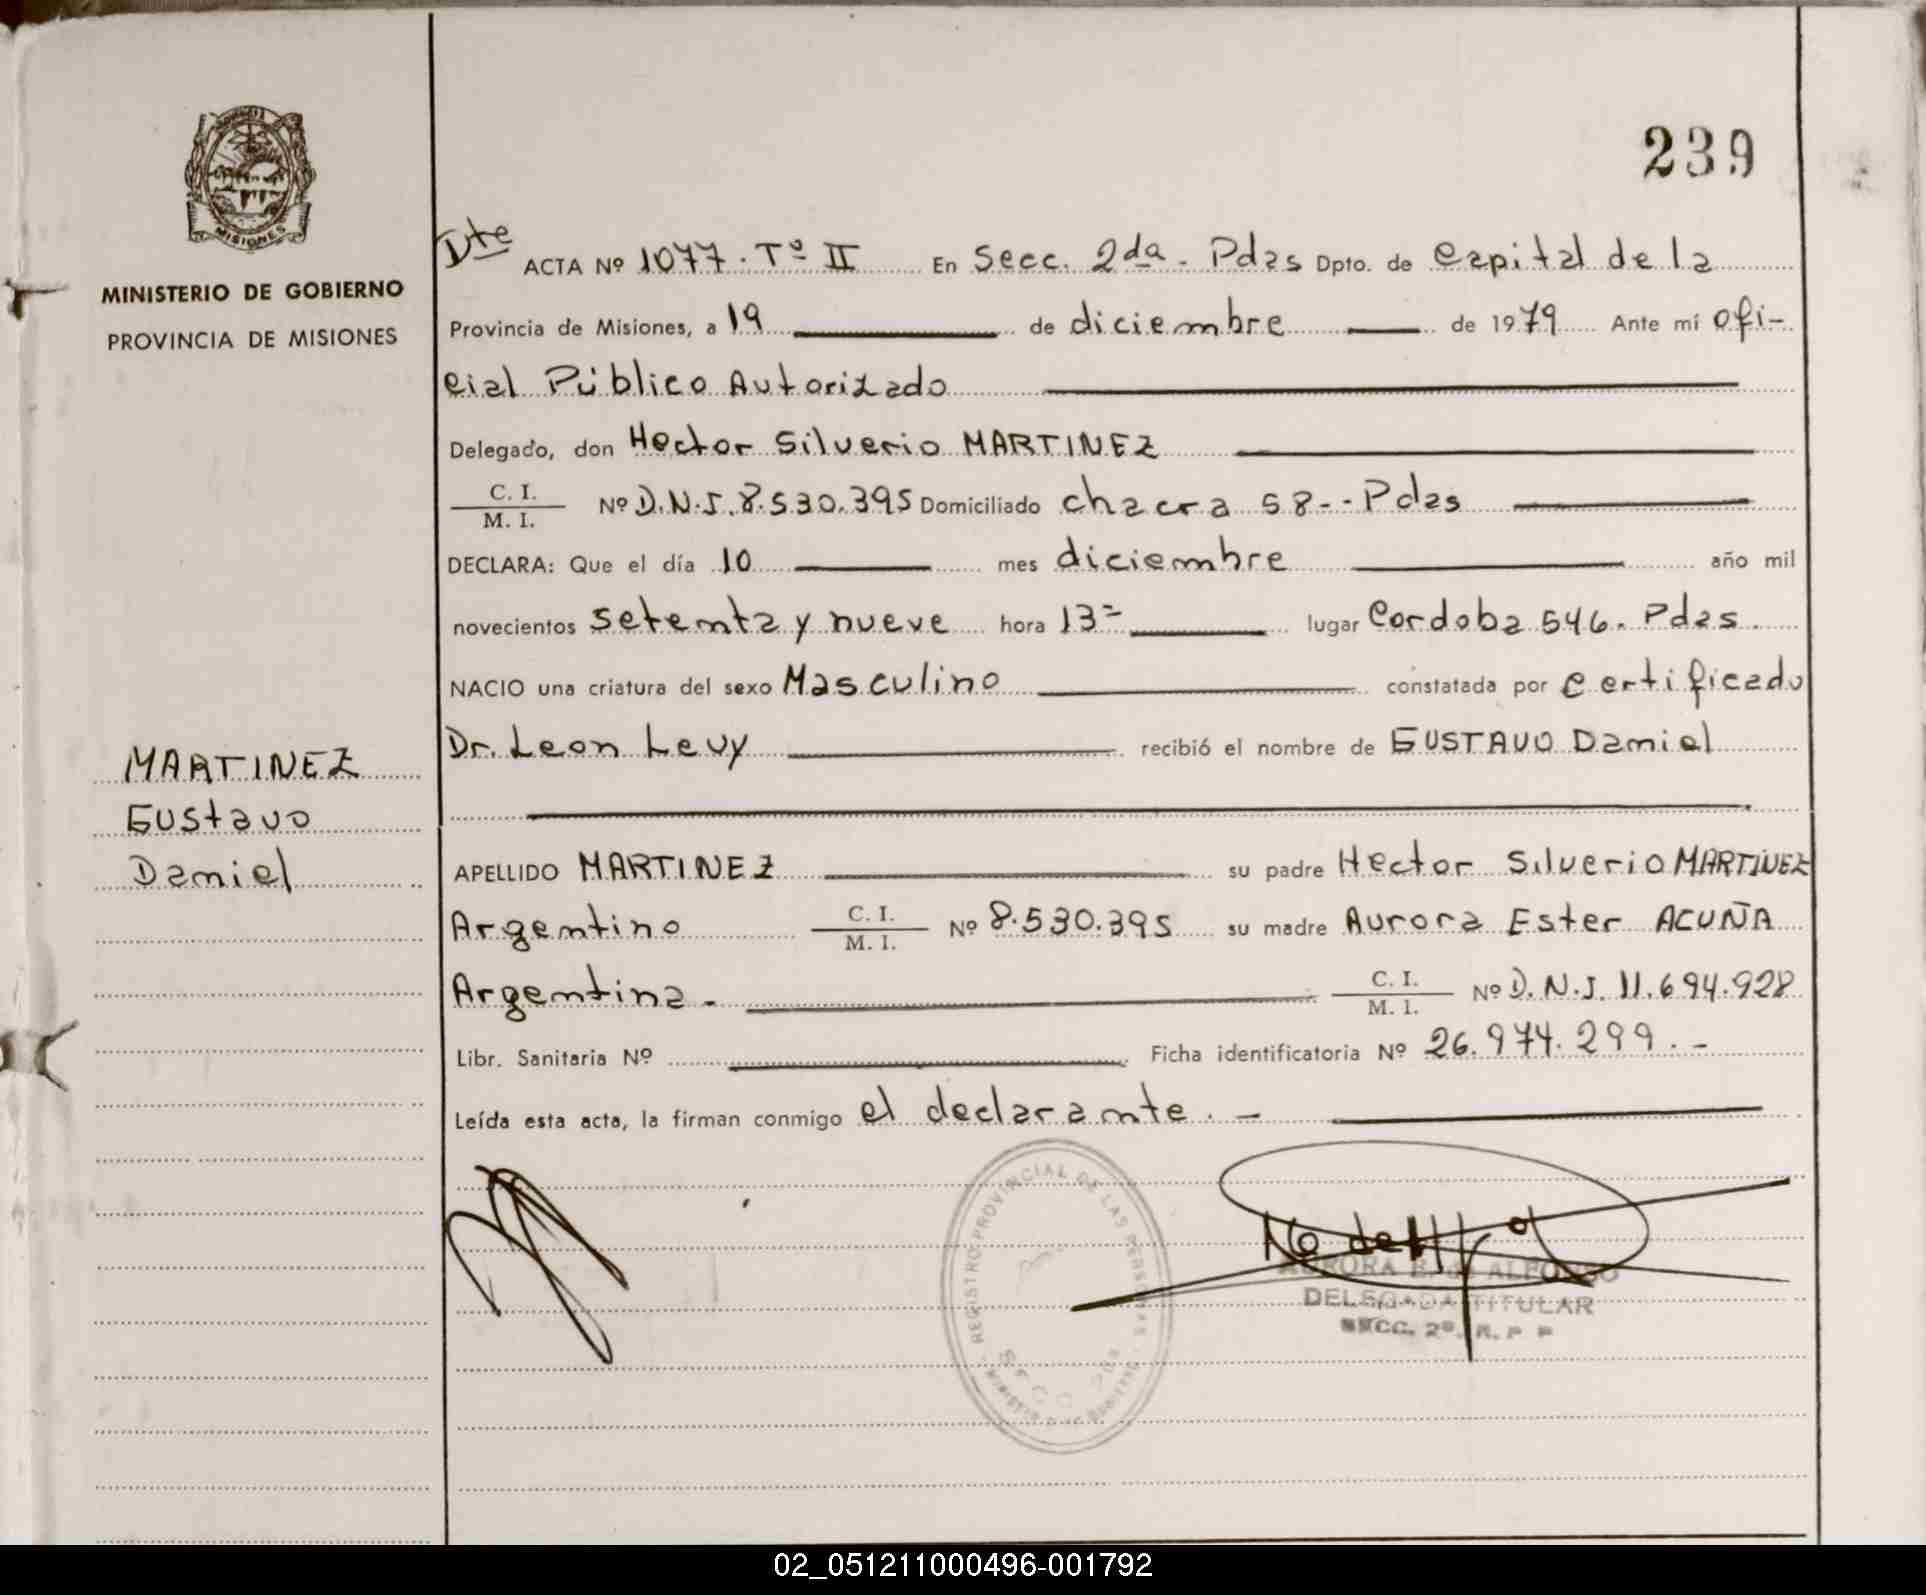 239
MISIONES
MINISTERIO DE GOBIERNO
PROVINCIA DE MISIONES
MARTINEZ
Gustavo
Daniel
Dte ACTA Nº 1077. Tº II En Secc. 2da. Pdas Dpto. de Capital de la
Provincia de Misiones, a 19 de diciembre de 1979 Ante mí ofi-
cial Público Autorizado
Delegado, don Hector Silverio MARTINEZ
C. I.
M. I. Nº D.N.I. 8.530.395 Domiciliado chacra 58-- Pdas
DECLARA: Que el día 10 mes diciembre año mil
novecientos setenta y nueve hora 13= lugar Cordoba 546. Pdas.
NACIO una criatura del sexo Masculino constatada por certificado
Dr. Leon Levy recibió el nombre de GUSTAVO Daniel
APELLIDO MARTINEZ su padre Hector Silverio MARTINEZ
Argentino C. I.
M. I. Nº 8.530.395 su madre Aurora Ester ACUÑA
Argentina. C. I.
M. I. Nº D.N.I. 11.694.928
Libr. Sanitaria Nº Ficha identificatoria Nº 26.974.299.-
Leída esta acta, la firman conmigo el declarante. -
REGISTRO PROVINCIAL DE LAS PERSONAS
AURORA B. de ALFONSO
DELEGADA TITULAR
SECC. 2º. R. P P
02_051211000496-001792